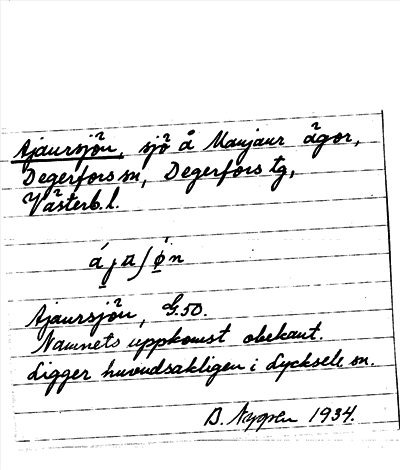 Ajaursjön, sjö å Manjaur ägor,
Degerfors sn, Degerfors tg,
Västerb. l.
Ajaursjön, G.50.
Namnets uppkomst obekant.
Ligger huvudsakligen i Lycksele sn.
B. 1934.